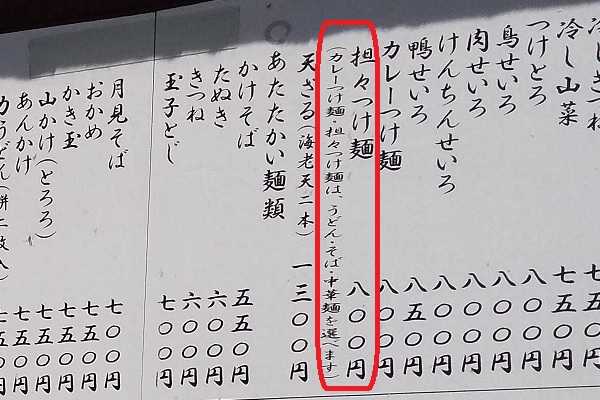 冷しきつね 七五〇円
冷し山菜 七五〇円
つけとろ 八〇〇円
鳥せいろ 八〇〇円
肉せいろ 八〇〇円
けんちんせいろ 八〇〇円
鴨せいろ 八五〇円
カレーつけ麺 八〇〇円
担々つけ麺 八〇〇円
(カレーつけ麺・担々つけ麺は、うどん・そば・中華麺を選べます)
天ざる(海老天二本) 一三〇〇円
〇あたたかい麺類
かけそば 五五〇円
たぬき 六〇〇円
きつね 六〇〇円
玉子とじ 七〇〇円
月見そば 七〇〇円
おかめ 七〇〇円
かき玉 七〇〇円
山かけ(とろろ) 七五〇円
あんかけ 七五〇円
力うどん(餅二枚入) 七五〇円